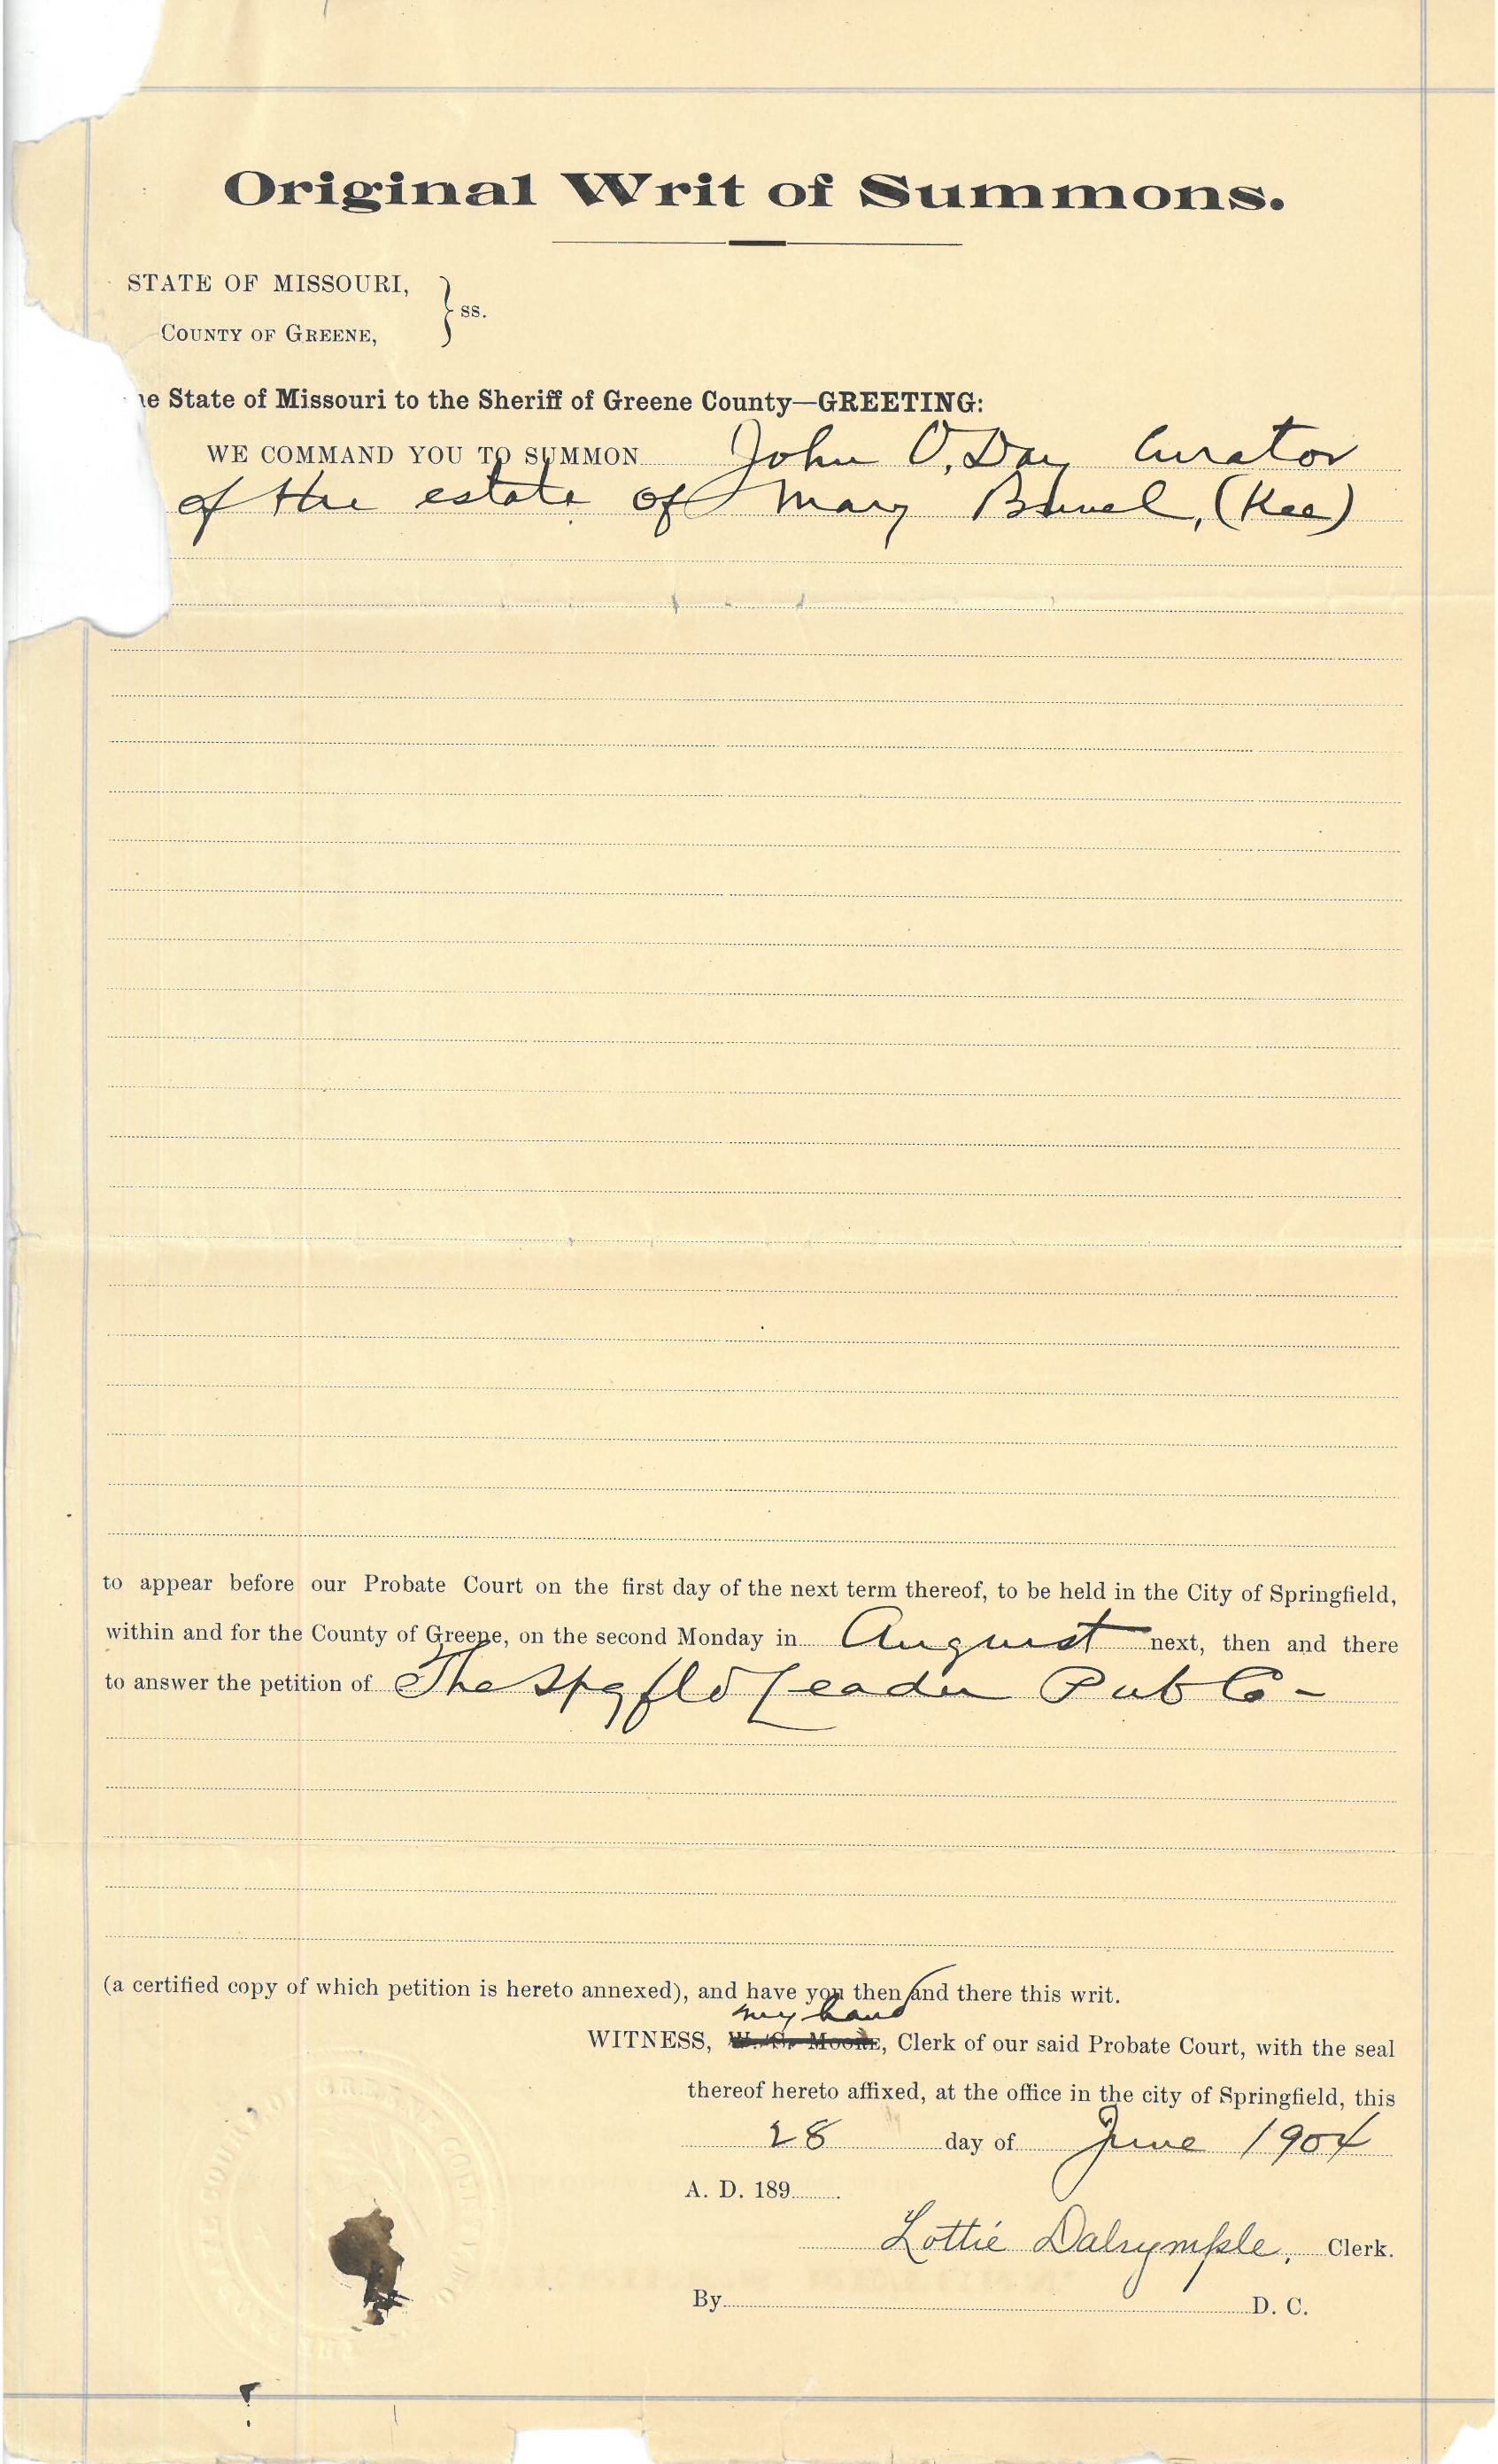 Original Writ of Summons.
STATE OF MISSOURI,
COUNTY OF GREENE, } ss.
e State of Missouri to the Sheriff of Greene County—GREETING:
WE COMMAND YOU TO SUMMON John O, Day Curator
of the estate of Mary (Kee)
to appear before our Probate Court on the first day of the next term thereof, to be held in the City of Springfield,
within and for the County of Greene, on the second Monday in August next, then and there
to answer the petition of The Spgfld Leader Pub Co -
(a certified copy of which petition is hereto annexed), and have you then and there this writ.
my hand
WITNESS, W. C. MOORE, Clerk of our said Probate Court, with the seal
thereof hereto affixed, at the office in the city of Springfield, this
28 day of June 1904
A. D. 189
Lottie Dalrymple, Clerk.
By D. C.